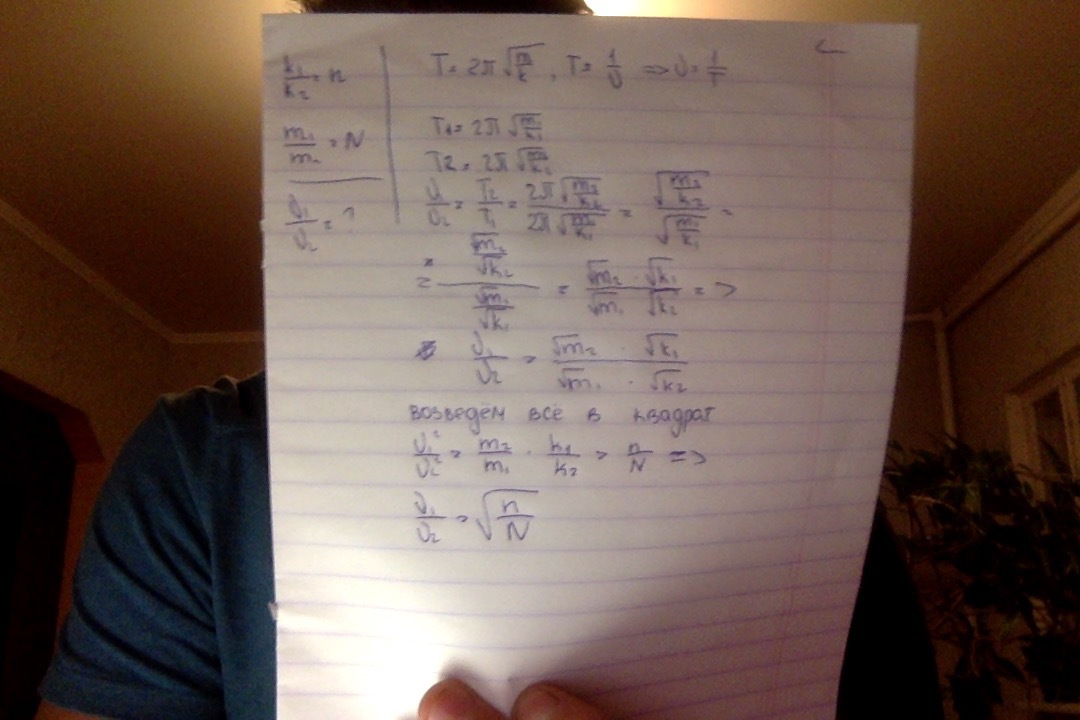 k₁/k₂ = n
m₁/m₂ = N
υ₁/υ₂ = ?
T = 2π√(m/k), T = 1/υ => υ = 1/T
T₁ = 2π√(m₁/k₁)
T₂ = 2π√(m₂/k₂)
υ₁/υ₂ = T₂/T₁ = 2π√(m₂/k₂) / 2π√(m₁/k₁) = √(m₂/k₂) / √(m₁/k₁) =
= (√m₂/√k₂) / (√m₁/√k₁) = √m₂ · √k₁ / √m₁ √k₂ = >
υ₁/υ₂ = √m₂ · √k₁ / √m₁ · √k₂
возведём всё в квадрат
υ₁²/υ₂² = m₂/m₁ · k₁/k₂ = n/N =>
υ₁/υ₂ = √(n/N)